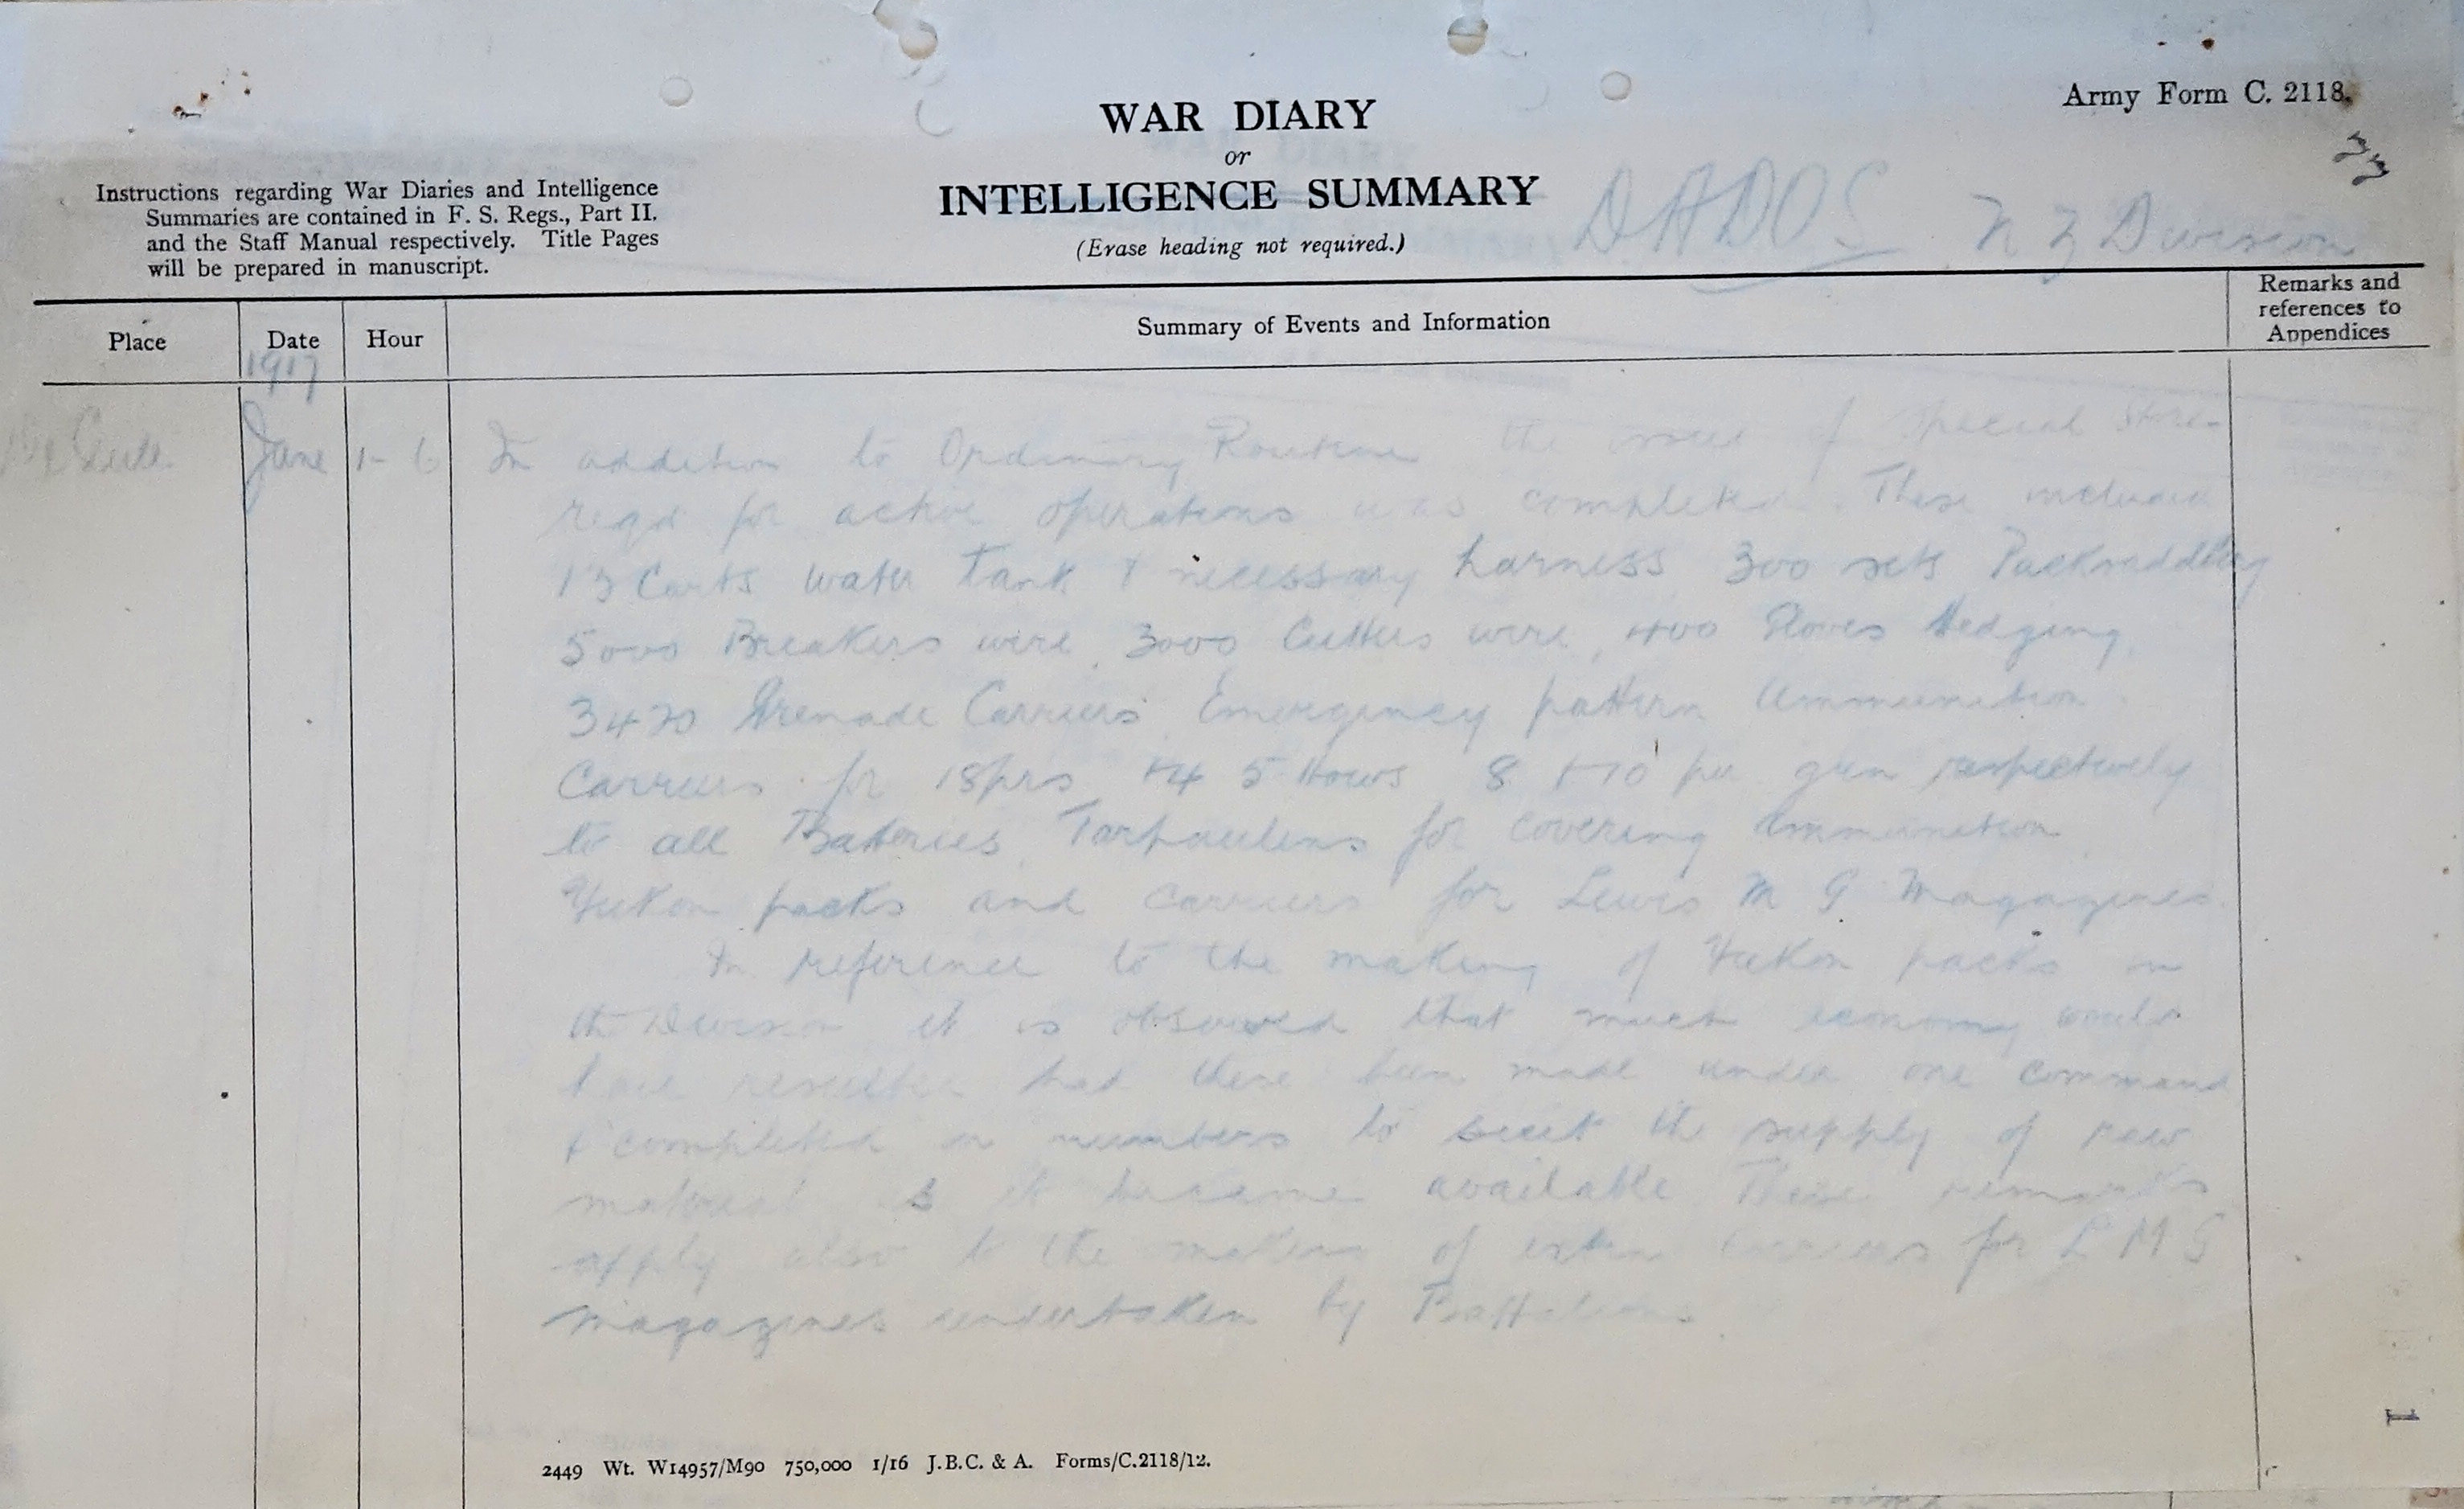 Army Form C. 2118.
WAR DIARY
or
INTELLIGENCE SUMMARY
(Erase heading not required.)
Instructions regarding War Diaries and Intelligence
Summaries are contained in F. S. Regs., Part II.
and the Staff Manual respectively. Title Pages
will be prepared in manuscript.
DADOS N Z Division
Place
Date
Hour
Summary of Events and Information
Remarks and
references to
Appendices
1917
June 1-6
In addition to Ordinary Routine the issue of special stores
reqd for active operations was completed. These included
13 Carts water tank & necessary harness 300 sets Packsaddlery
5000 Breakers wire, 3000 Cutters wire, 400 Gloves Hedging,
3420 Grenade Carriers Emergency pattern Ammunition
Carriers for 18prs & 4 5 Hows 8 & 10 per gun respectively
to all Batteries, Tarpaulins for covering Ammunition
Yukon packs and carriers for Lewis M G Magazines.
In reference to the making of Yukon packs in
the Division it is observed that much economy would
have resulted had these been made under one command
& completed in numbers to suit the supply of raw
material as it became available These remarks
apply also to the making of extra carriers for L M G
magazines undertaken by Battalions.
2449 Wt. W14957/M90 750,000 1/16 J.B.C. & A. Forms/C.2118/12.
1